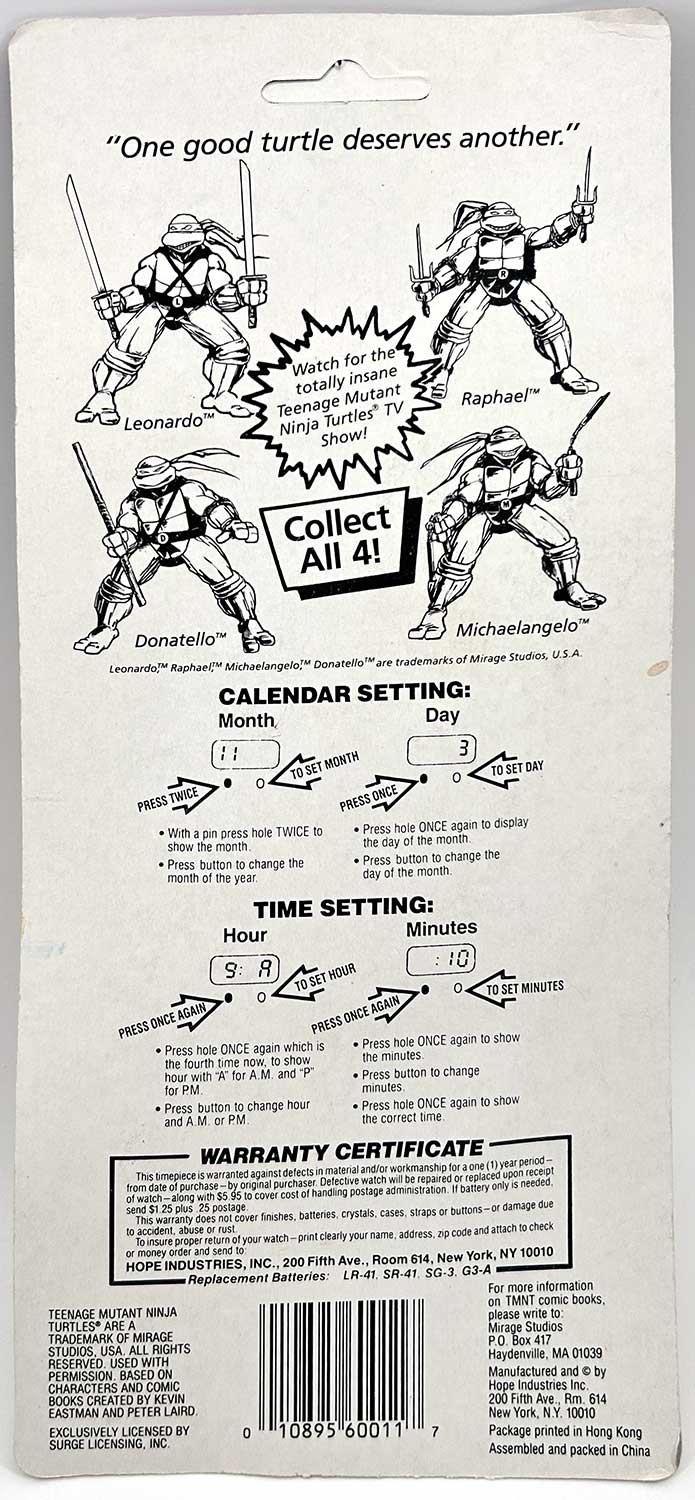 "One good turtle deserves another."
L
R
Watch for the
totally insane
Teenage Mutant
Ninja Turtles® TV
Show!
Leonardo™
Raphael™
D
M
Collect
All 4!
Donatello™
Michaelangelo™
Leonardo,™ Raphael,™ Michaelangelo,™ Donatello™ are trademarks of Mirage Studios, U.S.A.
CALENDAR SETTING:
Month
11
PRESS TWICE
TO SET MONTH
• With a pin press hole TWICE to
show the month.
• Press button to change the
month of the year.
Day
3
PRESS ONCE
TO SET DAY
• Press hole ONCE again to display
the day of the month.
• Press button to change the
day of the month.
TIME SETTING:
Hour
9: A
PRESS ONCE AGAIN
TO SET HOUR
• Press hole ONCE again which is
the fourth time now, to show
hour with "A" for A.M. and "P"
for P.M.
• Press button to change hour
and A.M. or P.M.
Minutes
:10
PRESS ONCE AGAIN
TO SET MINUTES
• Press hole ONCE again to show
the minutes.
• Press button to change
minutes.
• Press hole ONCE again to show
the correct time.
WARRANTY CERTIFICATE
This timepiece is warranted against defects in material and/or workmanship for a one (1) year period—
from date of purchase—by original purchaser. Defective watch will be repaired or replaced upon receipt
of watch—along with $5.95 to cover cost of handling postage administration. If battery only is needed,
send $1.25 plus .25 postage.
This warranty does not cover finishes, batteries, crystals, cases, straps or buttons—or damage due
to accident, abuse or rust.
To insure proper return of your watch—print clearly your name, address, zip code and attach to check
or money order and send to:
HOPE INDUSTRIES, INC., 200 Fifth Ave., Room 614, New York, NY 10010
Replacement Batteries: LR-41, SR-41, SG-3, G3-A
TEENAGE MUTANT NINJA
TURTLES® ARE A
TRADEMARK OF MIRAGE
STUDIOS, USA. ALL RIGHTS
RESERVED. USED WITH
PERMISSION. BASED ON
CHARACTERS AND COMIC
BOOKS CREATED BY KEVIN
EASTMAN AND PETER LAIRD.
EXCLUSIVELY LICENSED BY
SURGE LICENSING, INC.
0 10895 60011 7
For more information
on TMNT comic books,
please write to:
Mirage Studios
P.O. Box 417
Haydenville, MA 01039
Manufactured and © by
Hope Industries Inc.
200 Fifth Ave., Rm. 614
New York, N.Y. 10010
Package printed in Hong Kong
Assembled and packed in China